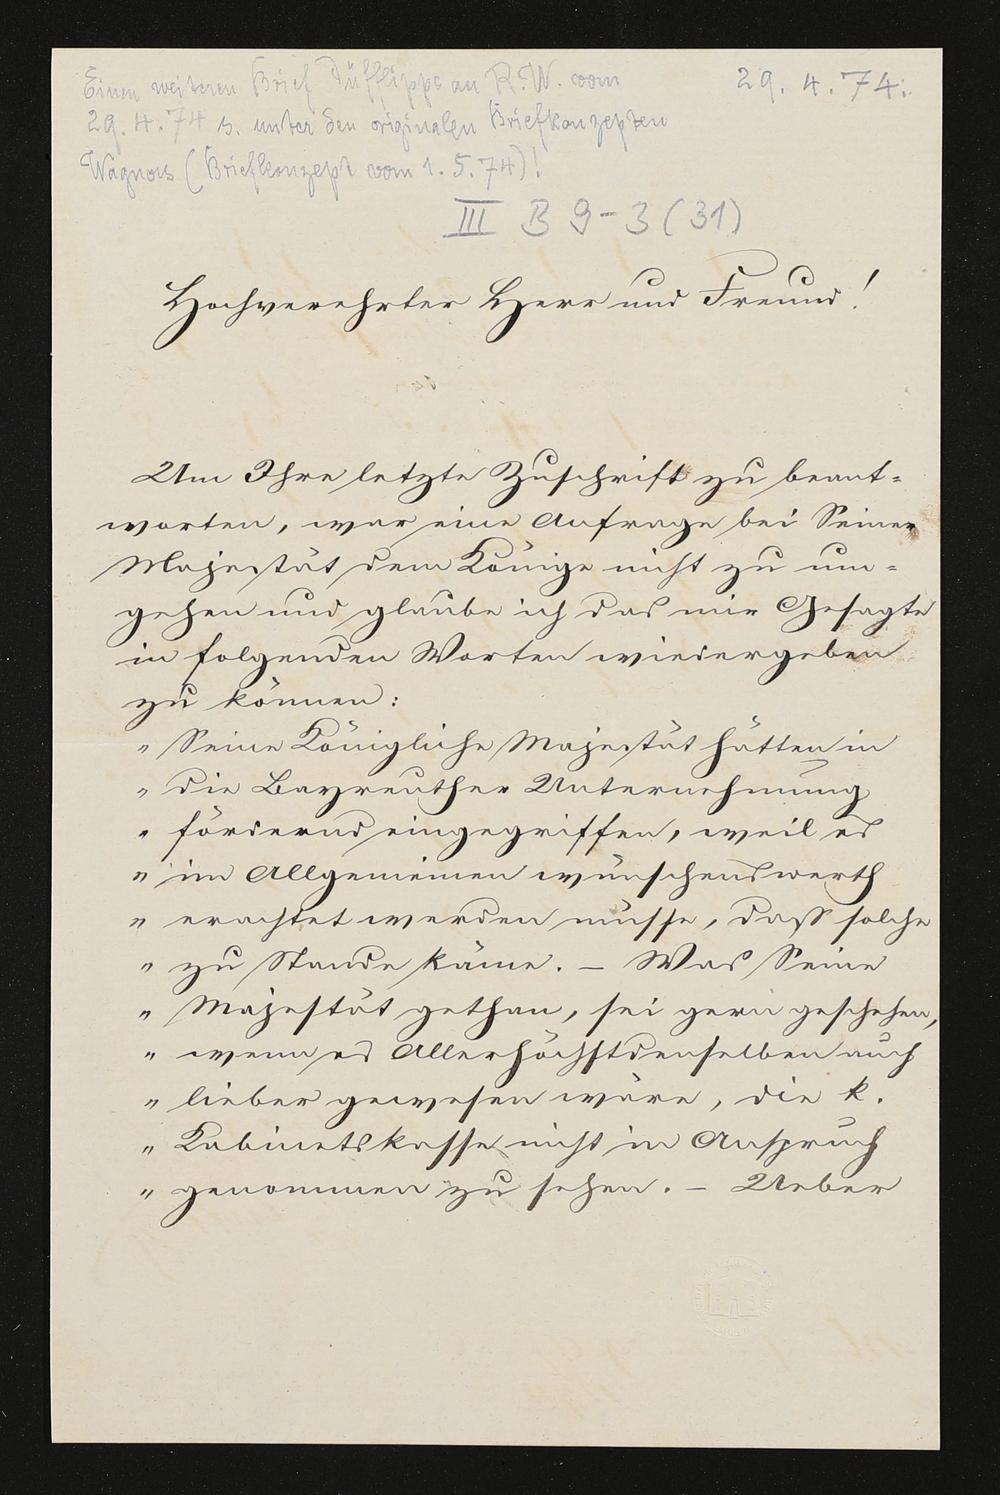 Einen weiteren Brief Düfflipps an R. W. vom
29. 4. 74:
29. 4. 74 s. unter den originalen Briefkonzepten
Wagners (Briefkonzept vom 1. 5. 74)!
III B 9-3 (31)
Hochverehrter Herr und Freund!
Um Ihre letzte Zuschrift zu beant-
worten, war eine Anfrage bei Seiner
Majestät dem Könige nicht zu um-
gehen und glaube ich das mir Gesagte
in folgenden Worten wiedergeben
zu können:
„ Seine Königliche Majestät hätten in
„ die Bayreuther Unternehmung
„ fördernd eingegriffen, weil es
„ im Allgemeinen wünschenswerth
„ erachtet werden müsse, dass solche
„ zu Stande käme. – Was Seine
„ Majestät gethan, sei gern geschehen,
„ wenn es Allerhöchstdenselben auch
„ lieber gewesen wäre, die k.
„ Kabinetskasse nicht in Anspruch
„ genommen zu sehen. – Ueber